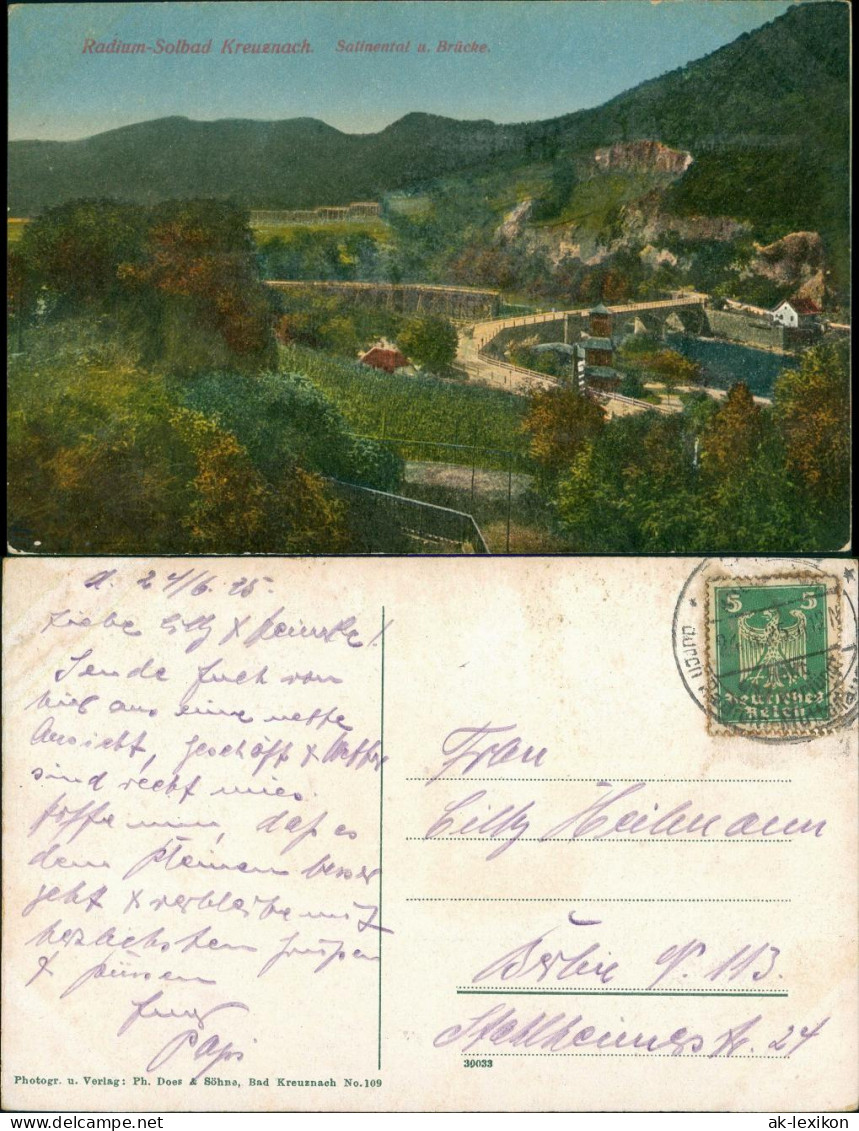 Radium-Solbad Kreuznach. Salinental u. Brücke.
d. 24/6. 25.
Liebe Cilly &
Sende Euch von
hier aus eine nette
Ansicht, Geschäft & Wetter
sind recht mies.
Hoffe nun, daß es
dem Kleinen besser
geht & verbleibe mit
herzlichsten Grüßen
& Küssen
Euer
Papi
Photogr. u. Verlag: Ph. Does & Söhne, Bad Kreuznach No. 109
5 5
Deutsches
Reich
Frau
Cilly Heilmann
Berlin N. 113.
Stahlheimerstr. 24
30033
ak-lexikon